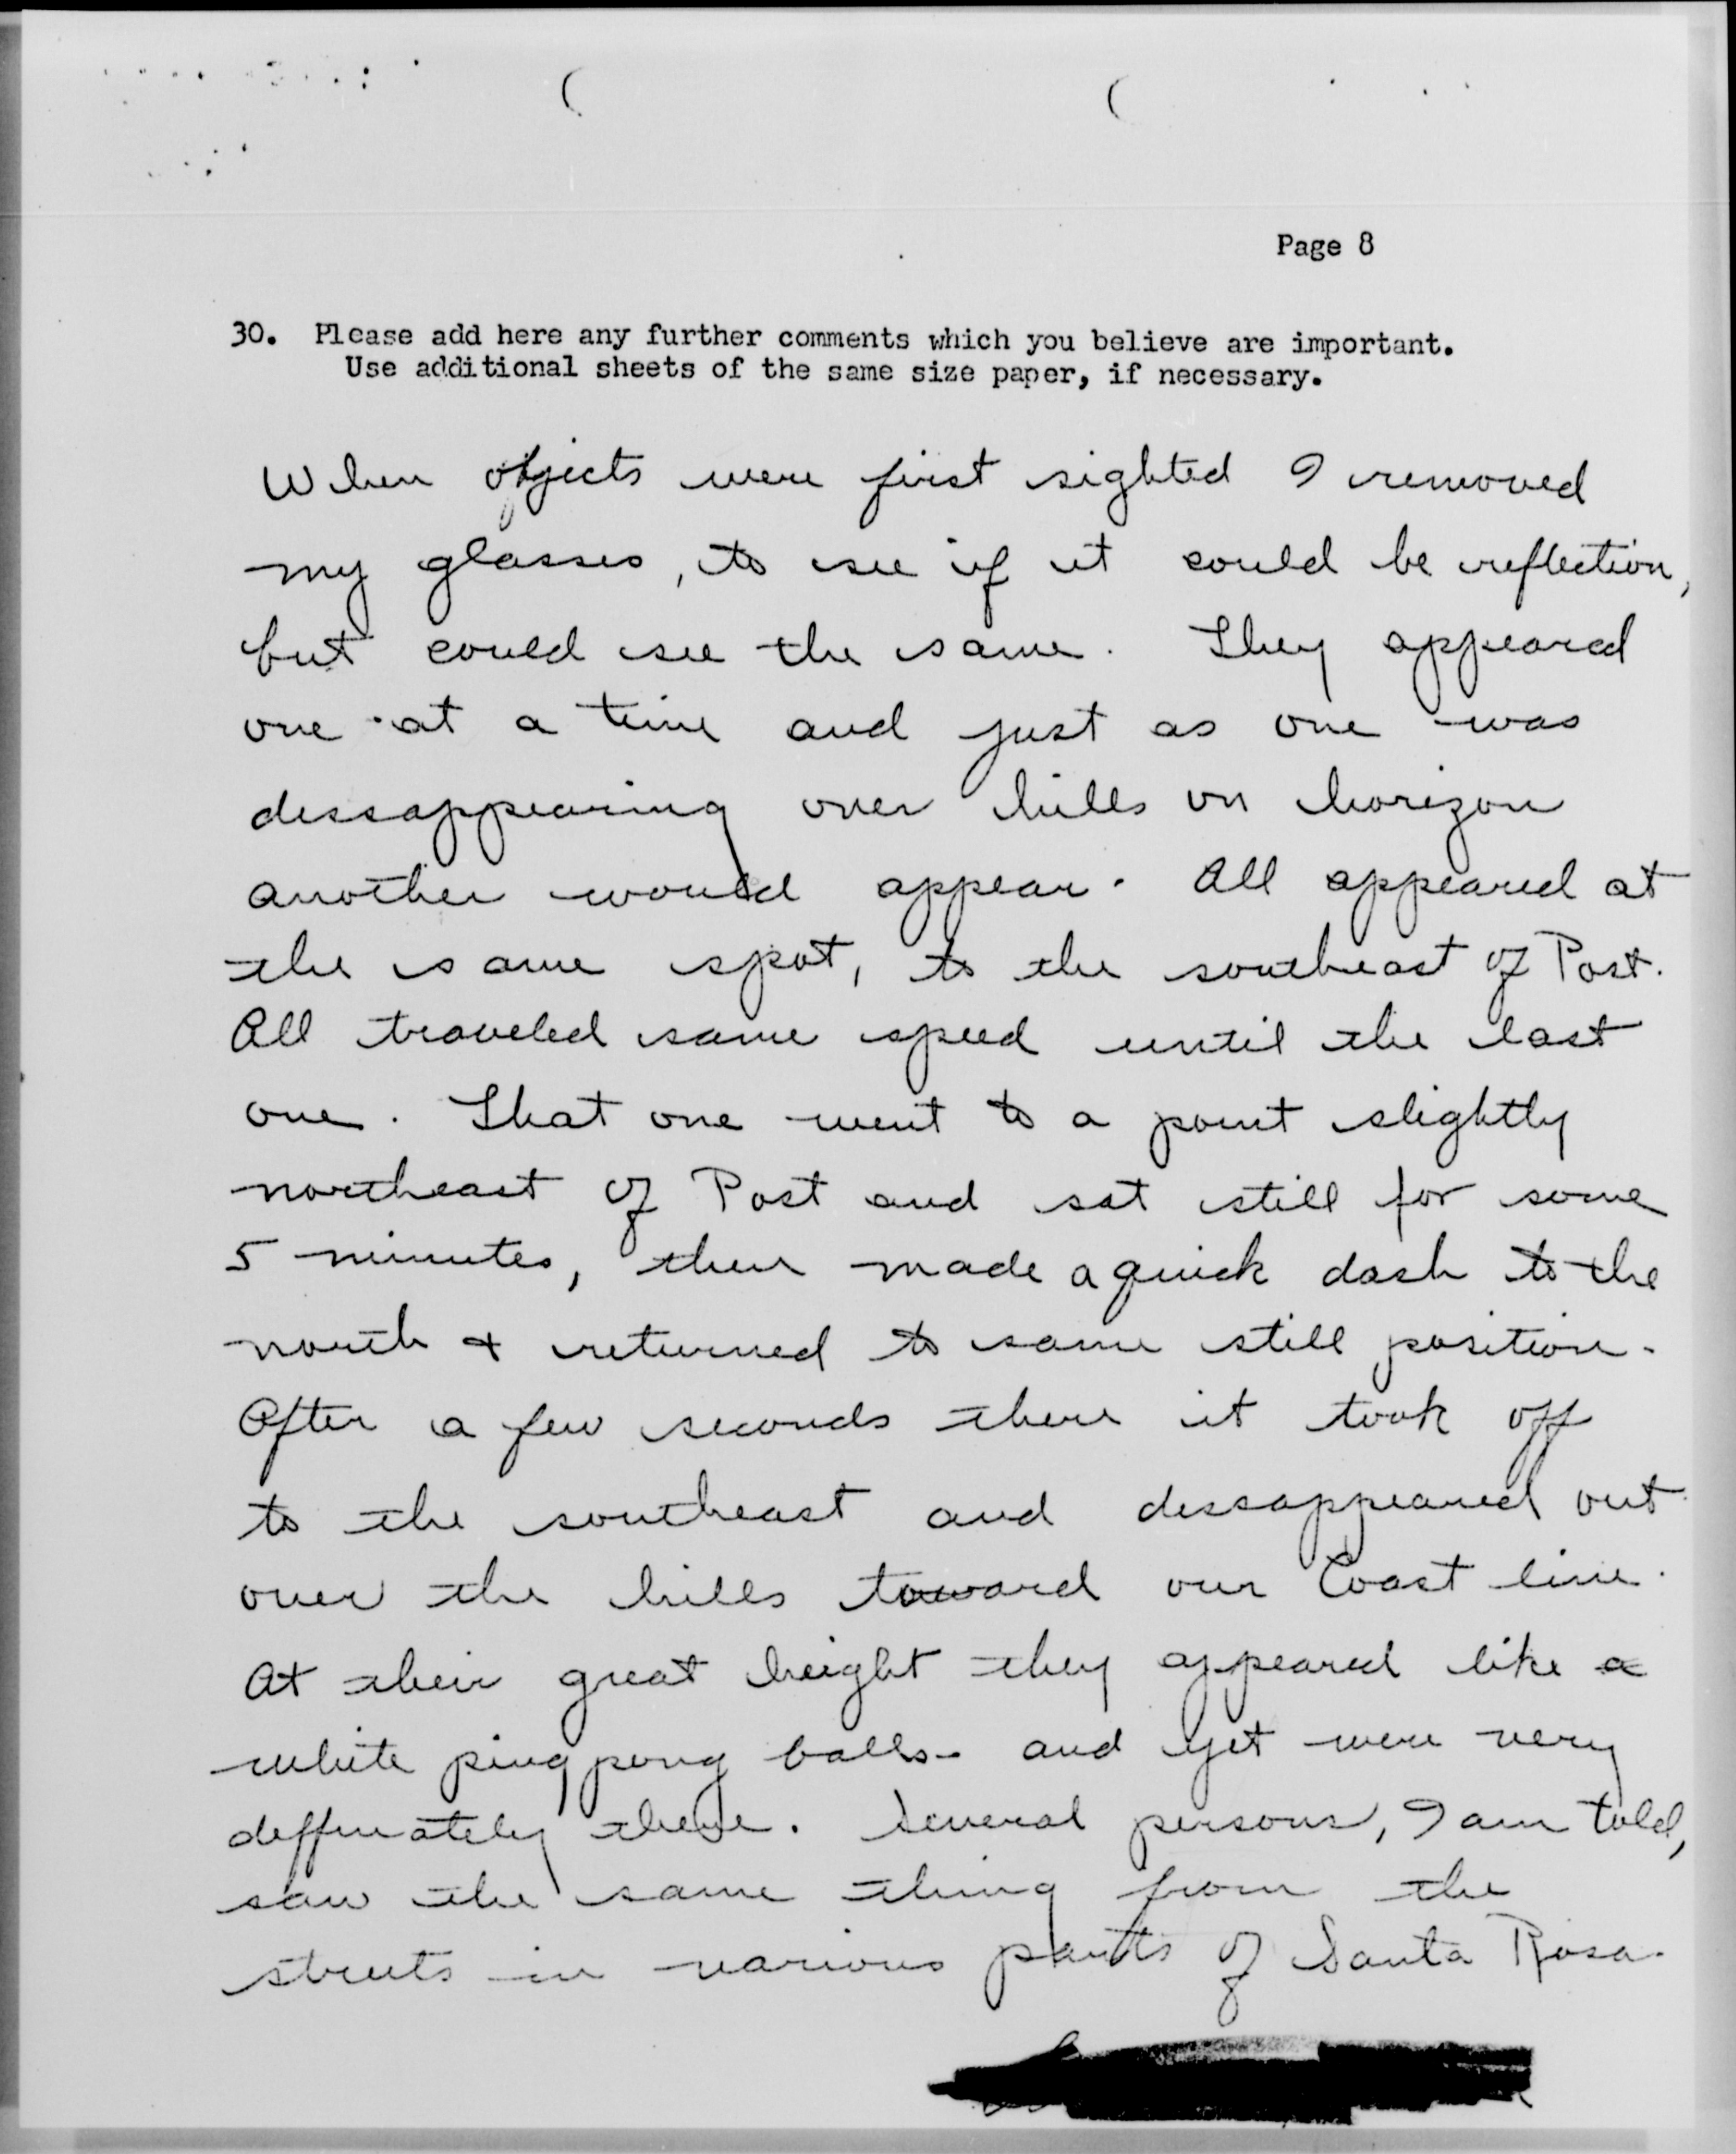 Page 8
30. Please add here any further comments which you believe are important.
Use additional sheets of the same size paper, if necessary.
When objects were first sighted I removed
my glasses, to see if it could be reflection,
but could see the same. They appeared
one at a time and just as one was
dissappearing over hills on horizon
another would appear. All appeared at
the same spot, to the southeast of Post.
All traveled same speed until the last
one. That one went to a point slightly
northeast of Post and sat still for some
5 minutes, then made a quick dash to the
north & returned to same still position.
After a few seconds there it took off
to the southeast and dissappeared out
over the hills toward our Coast line.
At their great height they appeared like a
white ping pong balls - and yet were very
deffinately there. Several persons, I am told,
saw the same thing from the
streets in various parts of Santa Rosa.